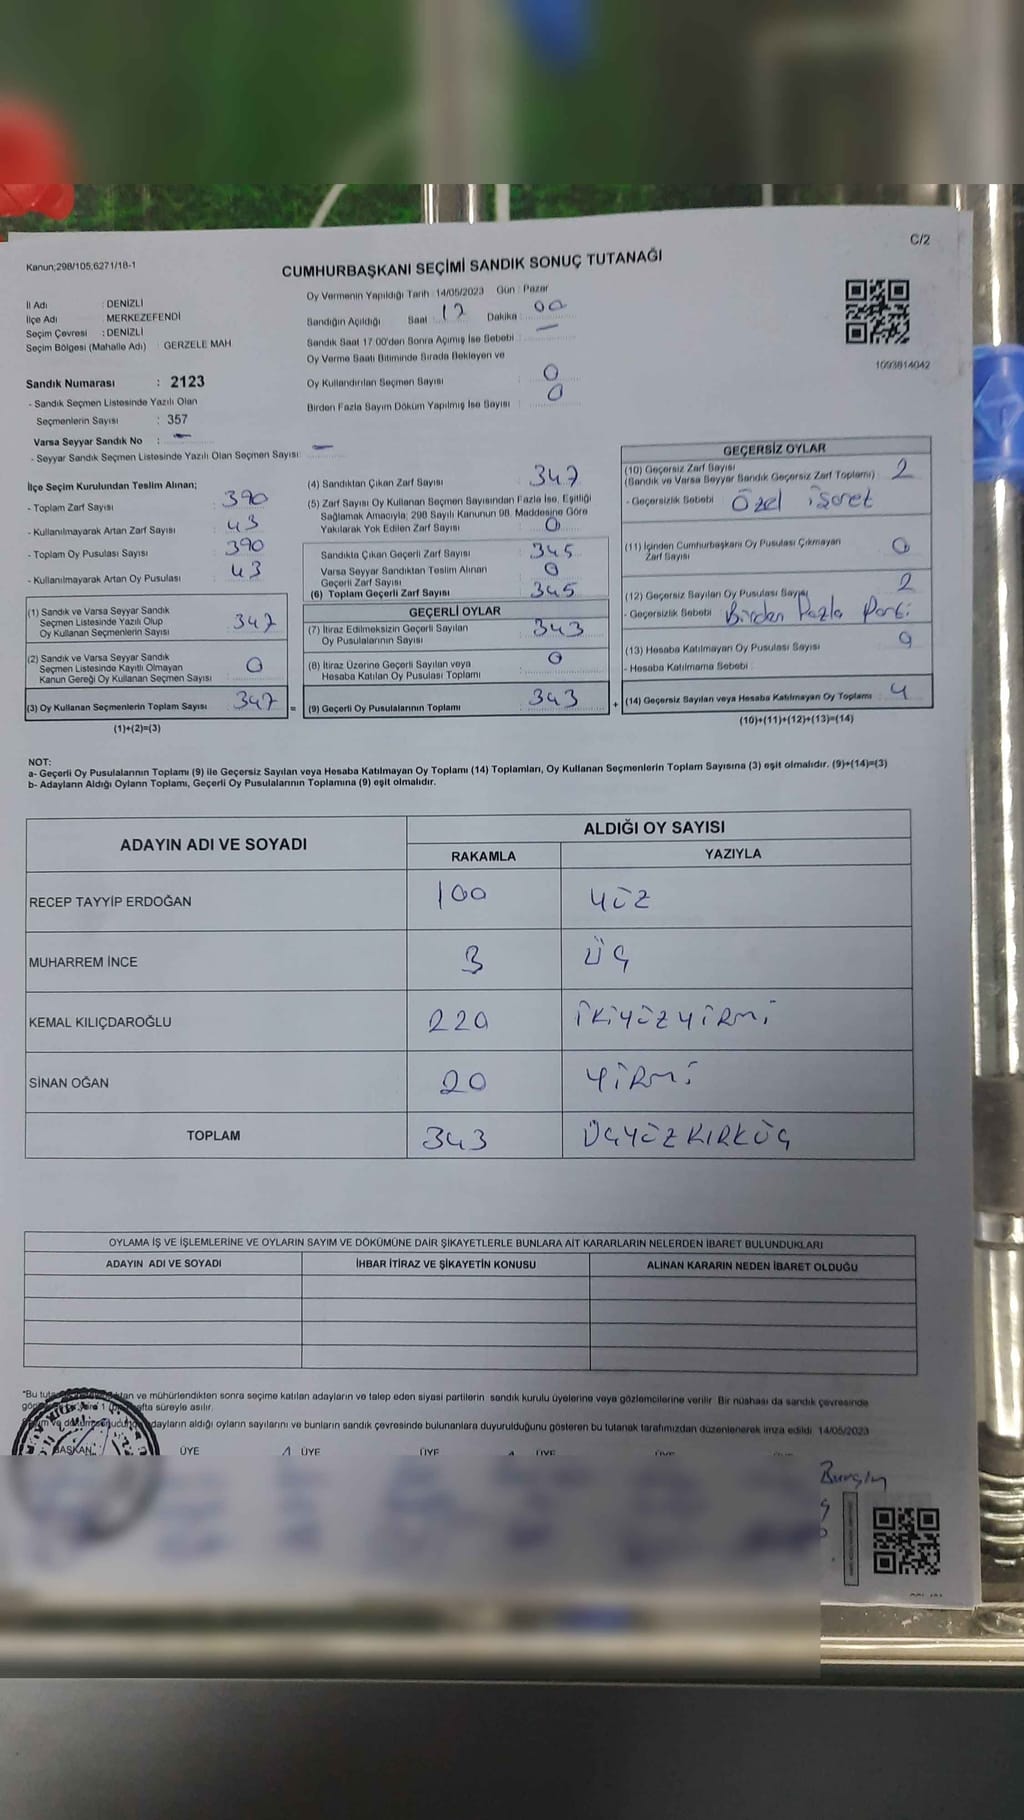 C/2
Kanun;298/105,6271/18-1
CUMHURBAŞKANI SEÇİMİ SANDIK SONUÇ TUTANAĞI
İl Adı : DENİZLİ
İlçe Adı : MERKEZEFENDİ
Seçim Çevresi : DENİZLİ
Seçim Bölgesi (Mahalle Adı) : GERZELE MAH
Sandık Numarası : 2123
- Sandık Seçmen Listesinde Yazılı Olan
Seçmenlerin Sayısı : 357
Varsa Seyyar Sandık No : —
- Seyyar Sandık Seçmen Listesinde Yazılı Olan Seçmen Sayısı: —
Oy Vermenin Yapıldığı Tarih : 14/05/2023 Gün : Pazar
Sandığın Açıldığı Saat : 17 Dakika : 00
Sandık Saat 17 00'den Sonra Açımış İse Sebebi : —
Oy Verme Saati Bitiminde Sırada Bekleyen ve
Oy Kullandırılan Seçmen Sayısı : 0
Birden Fazla Sayım Döküm Yapılmış İse Sayısı : 0
1093814042
İlçe Seçim Kurulundan Teslim Alınan;
- Toplam Zarf Sayısı : 390
- Kullanılmayarak Artan Zarf Sayısı : 43
- Toplam Oy Pusulası Sayısı : 390
- Kullanılmayarak Artan Oy Pusulası : 43
(1) Sandık ve Varsa Seyyar Sandık
Seçmen Listesinde Yazılı Olup
Oy Kullanan Seçmenlerin Sayısı : 347
(2) Sandık ve Varsa Seyyar Sandık
Seçmen Listesinde Kayıtlı Olmayan
Kanun Gereği Oy Kullanan Seçmen Sayısı : 0
(3) Oy Kullanan Seçmenlerin Toplam Sayısı : 347
(1)+(2)=(3)
(4) Sandıktan Çıkan Zarf Sayısı : 347
(5) Zarf Sayısı Oy Kullanan Seçmen Sayısından Fazla İse, Eşitliği
Sağlamak Amacıyla; 298 Sayılı Kanunun 98. Maddesine Göre
Yakılarak Yok Edilen Zarf Sayısı : 0
Sandıkta Çıkan Geçerli Zarf Sayısı : 345
Varsa Seyyar Sandıktan Teslim Alınan
Geçerli Zarf Sayısı : 0
(6) Toplam Geçerli Zarf Sayısı : 345
GEÇERLİ OYLAR
(7) İtiraz Edilmeksizin Geçerli Sayılan
Oy Pusulalarının Sayısı : 343
(8) İtiraz Üzerine Geçerli Sayılan veya
Hesaba Katılan Oy Pusulası Toplamı : 0
= (9) Geçerli Oy Pusulalarının Toplamı : 343 +
GEÇERSİZ OYLAR
(10) Geçersiz Zarf Sayısı
(Sandık ve Varsa Seyyar Sandık Geçersiz Zarf Toplamı) : 2
- Geçersizlik Sebebi : Özel işaret
(11) İçinden Cumhurbaşkanı Oy Pusulası Çıkmayan
Zarf Sayısı : 0
(12) Geçersiz Sayılan Oy Pusulası Sayısı : 2
- Geçersizlik Sebebi : Birden Fazla Parti
(13) Hesaba Katılmayan Oy Pusulası Sayısı
- Hesaba Katılmama Sebebi :
(14) Geçersiz Sayılan veya Hesaba Katılmayan Oy Toplamı : 4
(10)+(11)+(12)+(13)=(14)
NOT:
a- Geçerli Oy Pusulalarının Toplamı (9) ile Geçersiz Sayılan veya Hesaba Katılmayan Oy Toplamı (14) Toplamları, Oy Kullanan Seçmenlerin Toplam Sayısına (3) eşit olmalıdır. (9)+(14)=(3)
b- Adayların Aldığı Oyların Toplamı, Geçerli Oy Pusulalarının Toplamına (9) eşit olmalıdır.
ADAYIN ADI VE SOYADI ALDIĞI OY SAYISI
RAKAMLA YAZIYLA
RECEP TAYYİP ERDOĞAN 100 YÜZ
MUHARREM İNCE 3 ÜÇ
KEMAL KILIÇDAROĞLU 220 İKİYÜZYİRMİ
SİNAN OĞAN 20 YİRMİ
TOPLAM 343 ÜÇYÜZKIRKÜÇ
OYLAMA İŞ VE İŞLEMLERİNE VE OYLARIN SAYIM VE DÖKÜMÜNE DAİR ŞİKAYETLERLE BUNLARA AİT KARARLARIN NELERDEN İBARET BULUNDUKLARI
ADAYIN ADI VE SOYADI İHBAR İTİRAZ VE ŞİKAYETİN KONUSU ALINAN KARARIN NEDEN İBARET OLDUĞU
"Bu ve mühürlendikten sonra seçime katılan adayların ve talep eden siyasi partilerin sandık kurulu üyelerine veya gözlemcilerine verilir. Bir nüshası da sandık çevresinde
süreyle asılır.
adayların aldığı oyların sayılarını ve bunların sandık çevresinde bulunanlara duyurulduğunu gösteren bu tutanak tarafımızdan düzenlenerek imza edildi. 14/05/2023
BAŞKAN ÜYE ÜYE ÜYE ÜYE